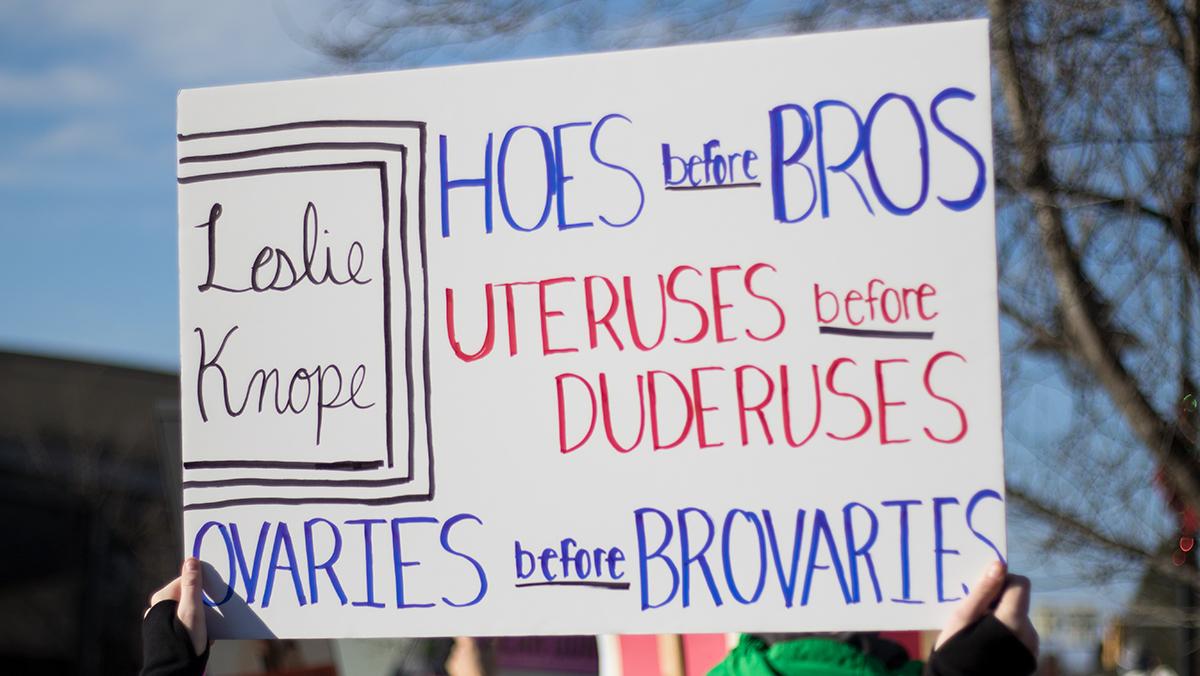 Leslie
Knope
HOES before BROS
UTERUSES before
DUDERUSES
OVARIES before BROVARIES